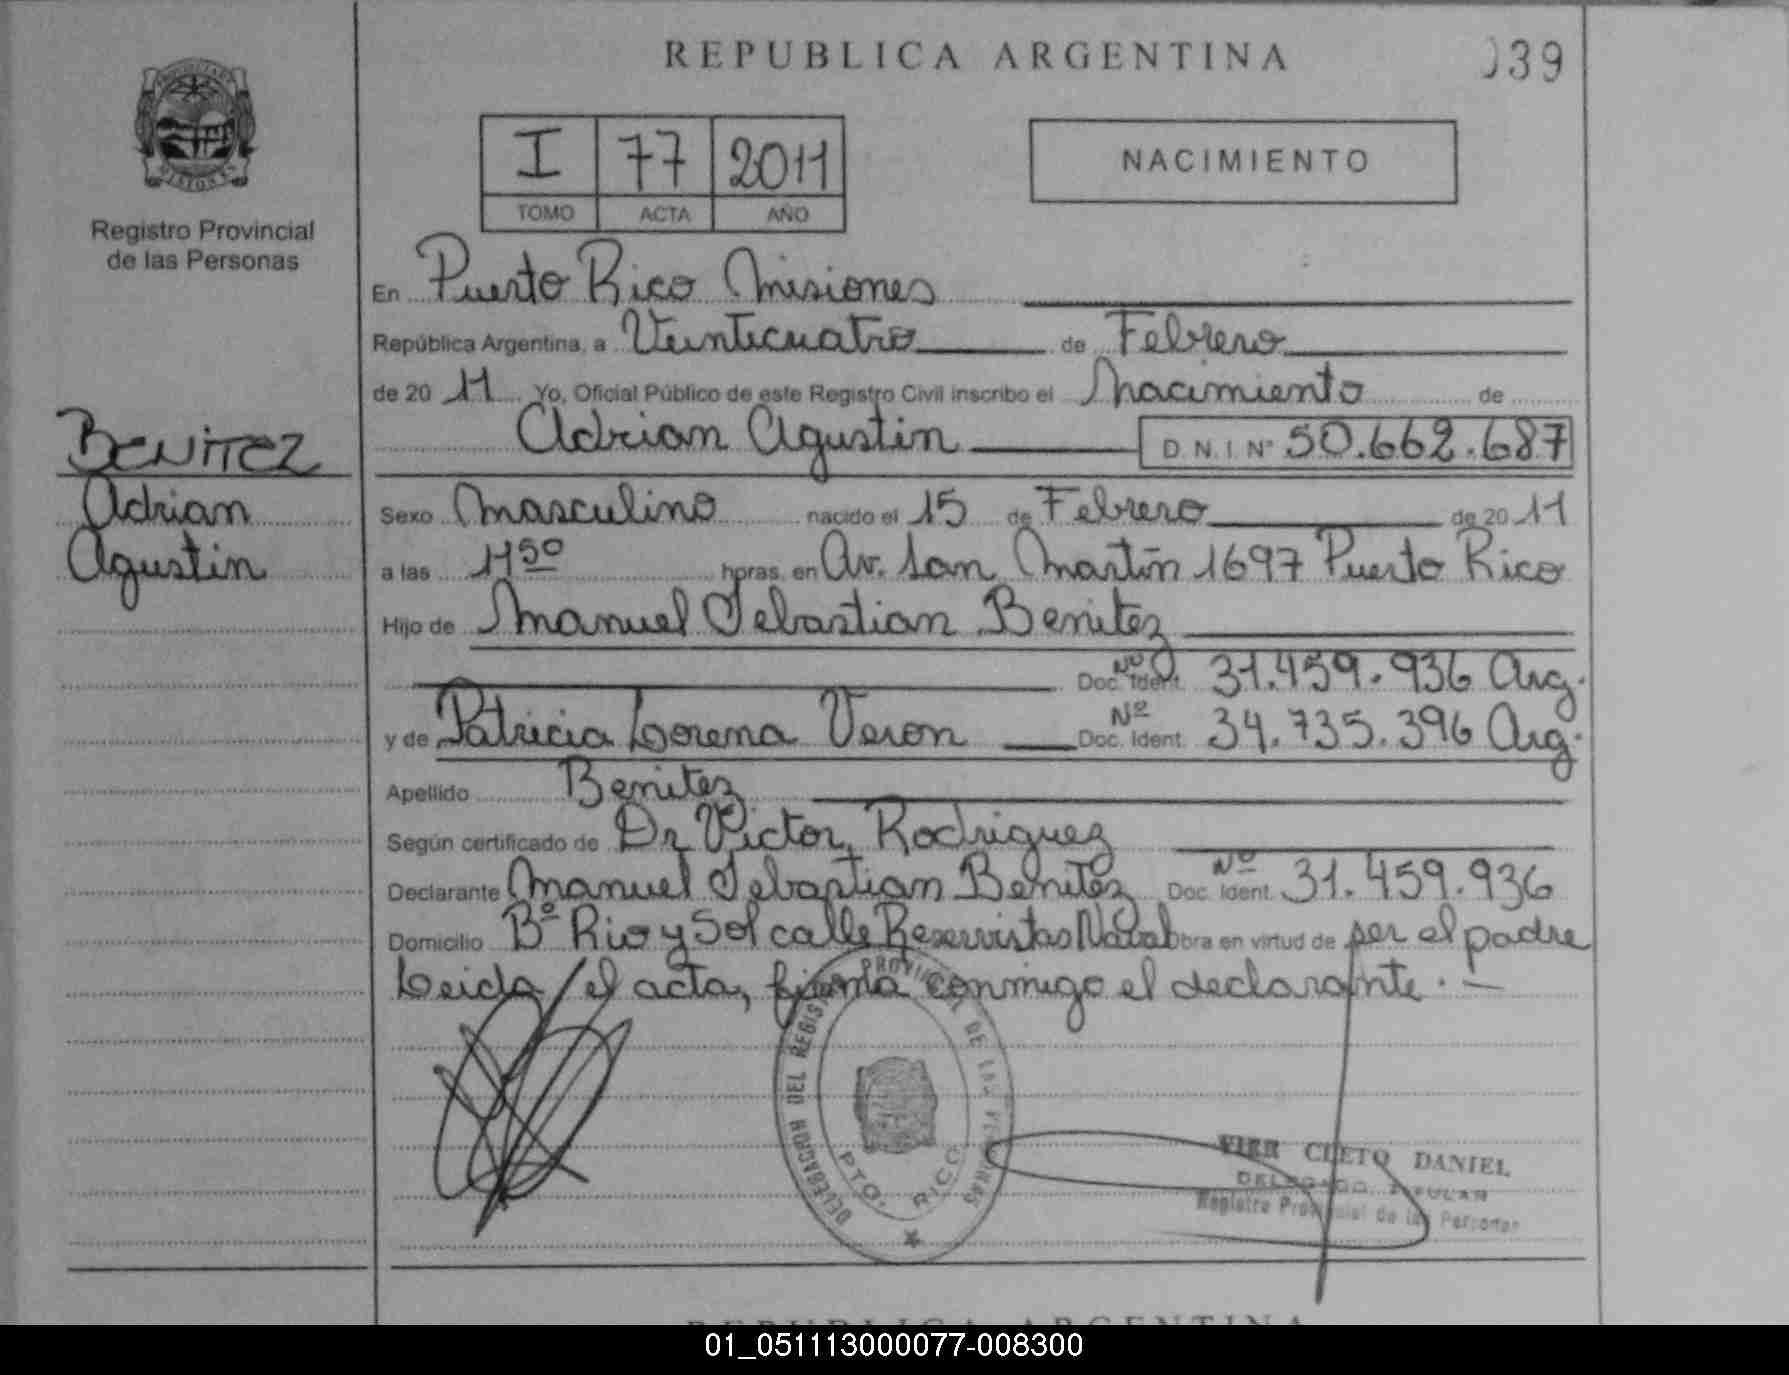 REPUBLICA ARGENTINA
039
PROVINCIA DE MISIONES
Registro Provincial
de las Personas
I 77 2011
TOMO ACTA AÑO
NACIMIENTO
En Puerto Rico Misiones
República Argentina, a Veinticuatro de Febrero
de 20 11 Yo, Oficial Público de este Registro Civil inscribo el Nacimiento de
Adrian Agustin D.N.I. Nº 50.662.687
BENITEZ
Adrian
Agustin
Sexo Masculino nacido el 15 de Febrero de 20 11
a las 11 50 horas, en Av. San Martin 1697 Puerto Rico
Hijo de Manuel Sebastian Benitez
Doc. Ident. Nº 31.459.936 Arg.
y de Patricia Lorena Veron Doc. Ident. Nº 34.735.396 Arg.
Apellido Benitez
Según certificado de Dr Victor Rodriguez
Declarante Manuel Sebastian Benitez Doc. Ident. Nº 31.459.936
Domicilio Bº Rio y Sol calle Reservistas Naval obra en virtud de ser el padre
Leida el acta, firma conmigo el declarante. -
DELEGACION DEL REGISTRO PROVINCIAL DE LAS PERSONAS
PTO. RICO
CLETO DANIEL
DELEGADO TITULAR
Registro Provincial de las Personas
REPUBLICA ARGENTINA
01_051113000077-008300